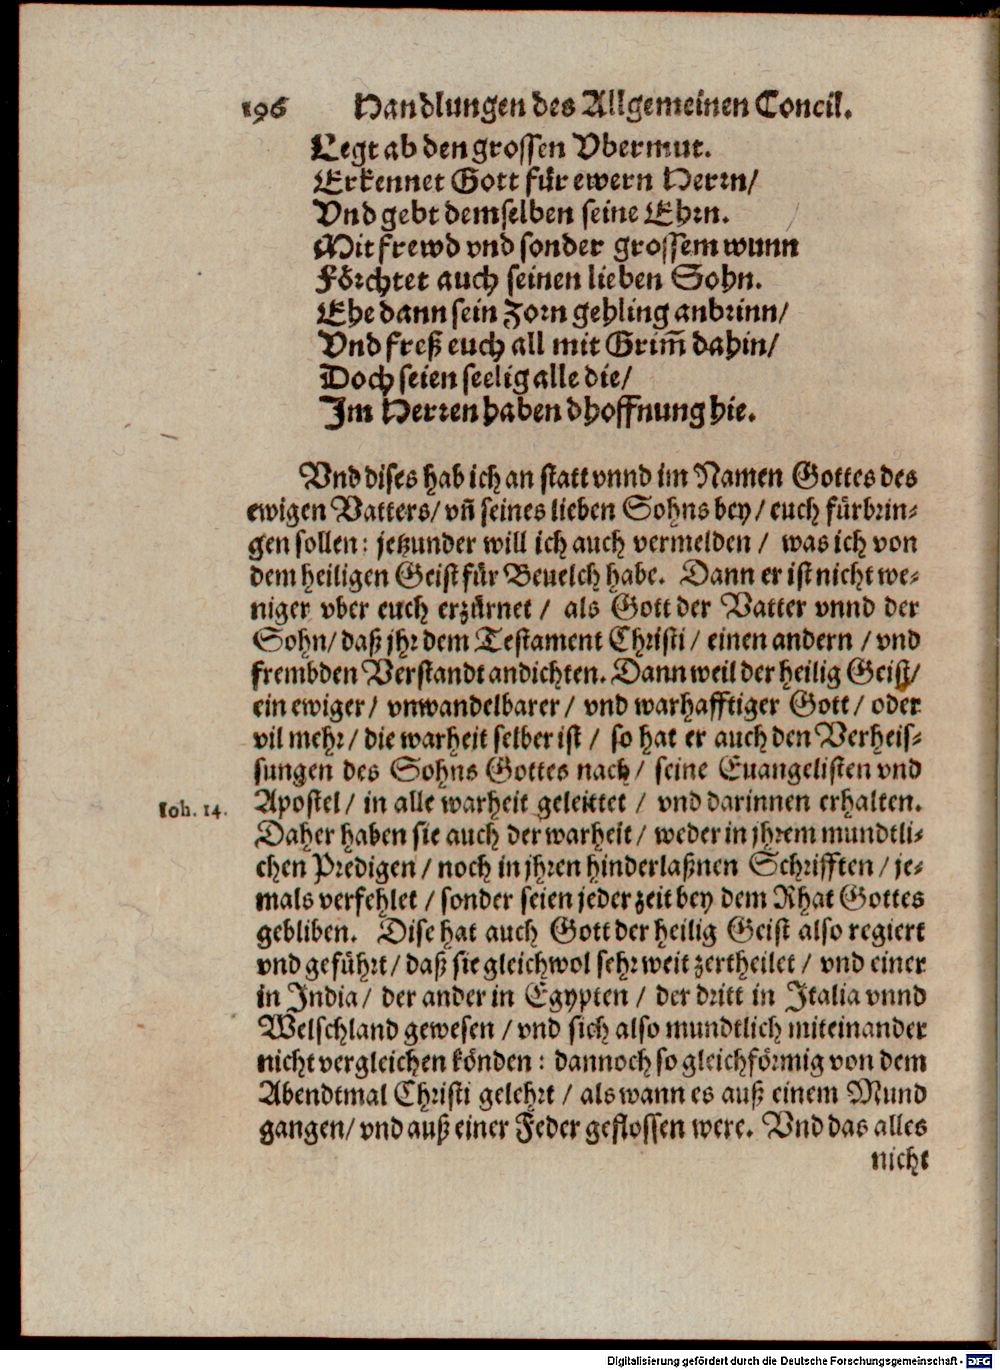 196 Handlungen des Allgemeinen Concil.
Legt ab den grossen Vbermut.
Erkennet Gott für ewern Herrn/
Vnd gebt demselben seine Ehrn.
Mit frewd vnd sonder grossem wunn
Förchtet auch seinen lieben Sohn.
Ehe dann sein Zorn gehling anbrinn/
Vnd freß euch all mit Grim̃ dahin/
Doch seien seelig alle die/
Im Herren haben dhoffnung hie.
Vnd dises hab ich an statt vnnd im Namen Gottes des
ewigen Vatters/ vñ seines lieben Sohns bey/ euch fürbrin-
gen sollen: jetzunder will ich auch vermelden / was ich von
dem heiligen Geist für Beuelch habe. Dann er ist nicht we-
niger vber euch erzürnet / als Gott der Vatter vnnd der
Sohn/ daß jhr dem Testament Christi / einen andern / vnd
frembden Verstandt andichten. Dann weil der heilig Geist/
ein ewiger/ vnwandelbarer / vnd warhafftiger Gott / oder
vil mehr / die warheit selber ist / so hat er auch den Verheis-
sungen des Sohns Gottes nach / seine Euangelisten vnd
Ioh. 14. Apostel / in alle warheit geleittet / vnd darinnen erhalten.
Daher haben sie auch der warheit / weder in jhrem mundtli-
chen Predigen / noch in jhren hinderlaßnen Schrifften / je-
mals verfehlet / sonder seien jeder zeit bey dem Rhat Gottes
gebliben. Dise hat auch Gott der heilig Geist also regiert
vnd geführt / daß sie gleichwol sehr weit zertheilet / vnd einer
in India / der ander in Egypten / der dritt in Italia vnnd
Welschland gewesen / vnd sich also mundtlich miteinander
nicht vergleichen könden: dannoch so gleichförmig von dem
Abendtmal Christi gelehrt / als wann es auß einem Mund
gangen/ vnd auß einer Feder geflossen were. Vnd das alles
nicht
Digitalisierung gefördert durch die Deutsche Forschungsgemeinschaft - DFG